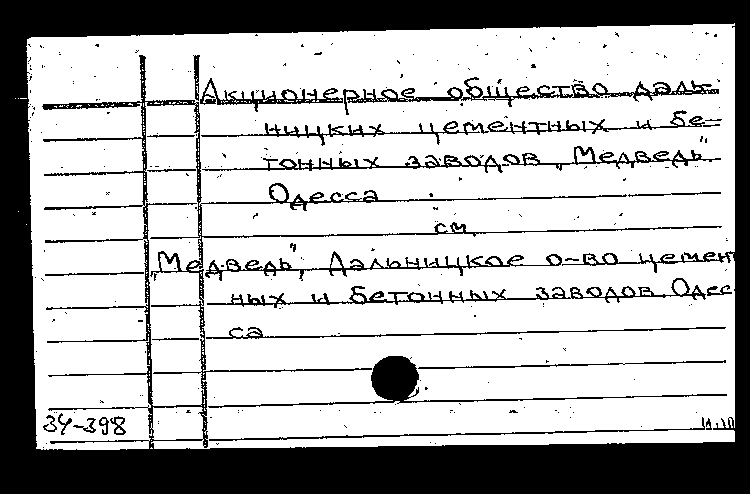 Акционерное общество даль-
ницких цементных и бе-
тонных заводов „Медведь"
Одесса
см.
„Медведь", Дальницкое о-во цемен
ных и бетонных заводов. Одес-
са
34-398